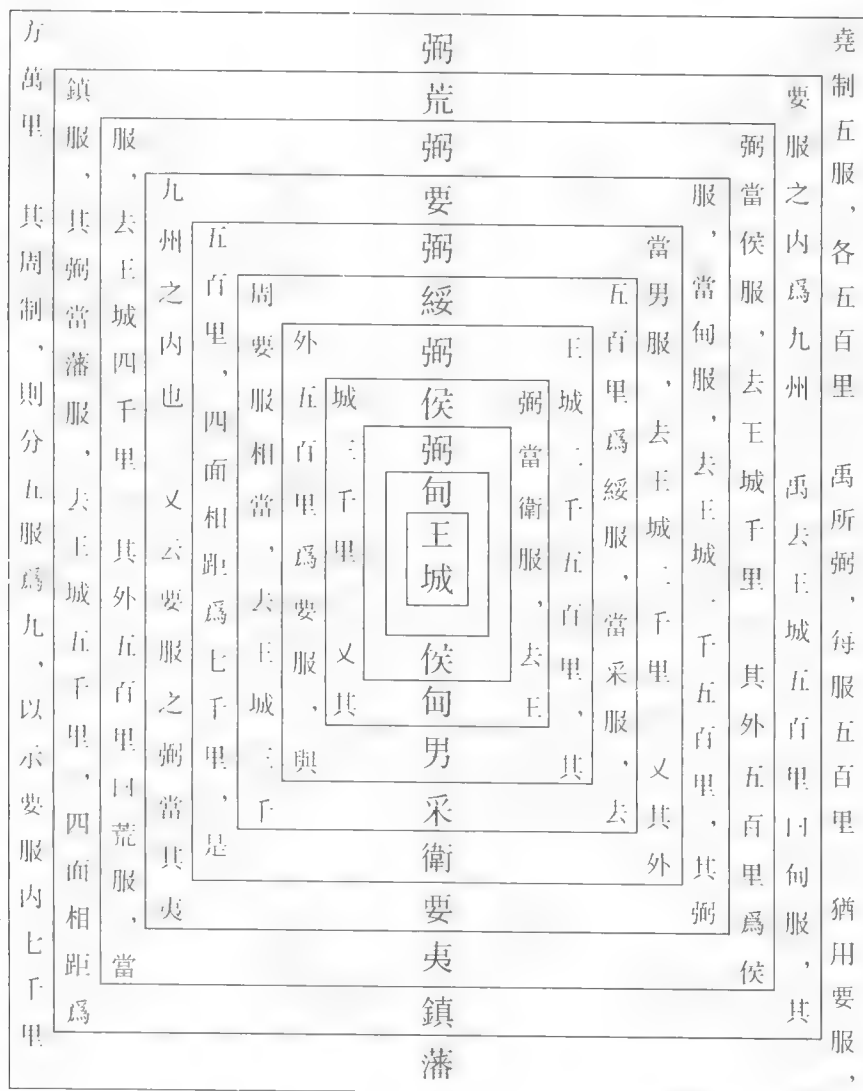 堯制五服，各五百里　禹所弼，每服五百里　猶用要服，
要服之内爲九州　禹去王城五百里曰甸服，其
弼當侯服，去王城千里　其外五百里爲侯
服，當甸服，去王城一千五百里，其弼
當男服，去王城二千里　又其外
五百里爲綏服，當采服，去
王城二千五百里，其
弼當衛服，去王
弼荒弼要弼綏弼侯弼甸王城侯甸男采衛要夷鎮藩
城三千里　又其
外五百里爲要服，與
周要服相當，去王城三千
五百里，四面相距爲七千里，是
九州之内也　又云要服之弼當其夷
服，去王城四千里　其外五百里曰荒服，當
鎮服，其弼當藩服，去王城五千里，四面相距爲
方萬里　其周制，則分五服爲九，以示要服内七千里